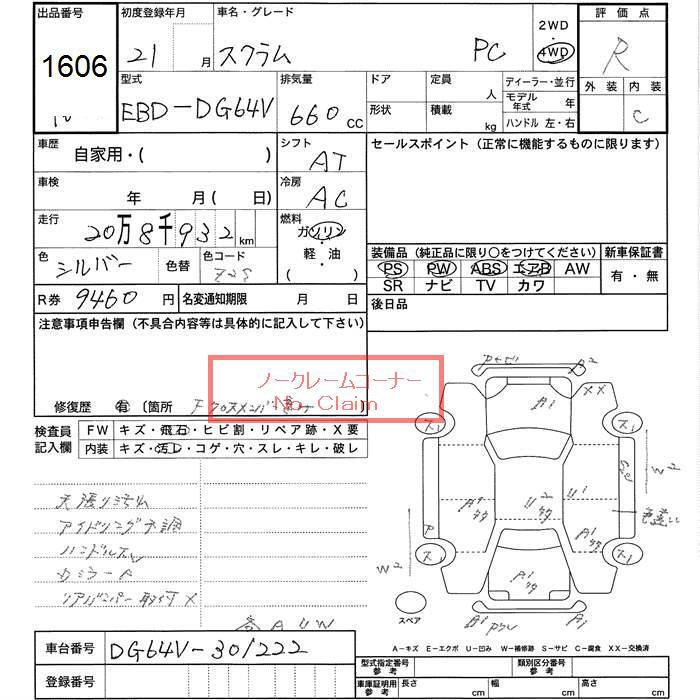 出品番号
1606
初度登録年月
21 月
車名・グレード
スクラム PC
2WD
4WD
評価点
R
外装 内装
C
型式
EBD-DG64V
排気量
660 CC
ドア
形状
定員 人
積載 kg
ディーラー・並行
モデル年式 年
ハンドル 左・右
車歴
自家用・( )
シフト
AT
セールスポイント (正常に機能するものに限ります)
車検
年 月( 日)
冷房
AC
走行
20万8千932km
燃料
ガソリン
軽・油
( )
色
シルバー
色替
色コード
Z2S
R券 9460円
名変通知期限 月 日
装備品 (純正品に限り○をつけてください)
PS PW ABS エアB AW
SR ナビ TV カワ
新車保証書
有・無
後日品
注意事項申告欄 (不具合内容等は具体的に記入して下さい)
ノークレームコーナー
No Claim
修復歴 有 〔箇所 Fクロスメンバー
検査員
記入欄
FW キズ・飛石・ヒビ割・リペア跡・X要
内装 キズ・汚レ・コゲ・穴・スレ・キレ・破レ
アイドリング不調
リアバンパー取付×
P P2
XX
A1
スリ
スリ
W2
色違い
スリ
スリ
W2
スペア
A-キズ E-エクボ U-凹み W-補修跡 S-サビ C-腐食 XX-交換済
車台番号 DG64V-301222
登録番号
型式指定番号
参考
類別区分番号
参考
車庫証明用
参考
長さ cm
幅 cm
高さ cm